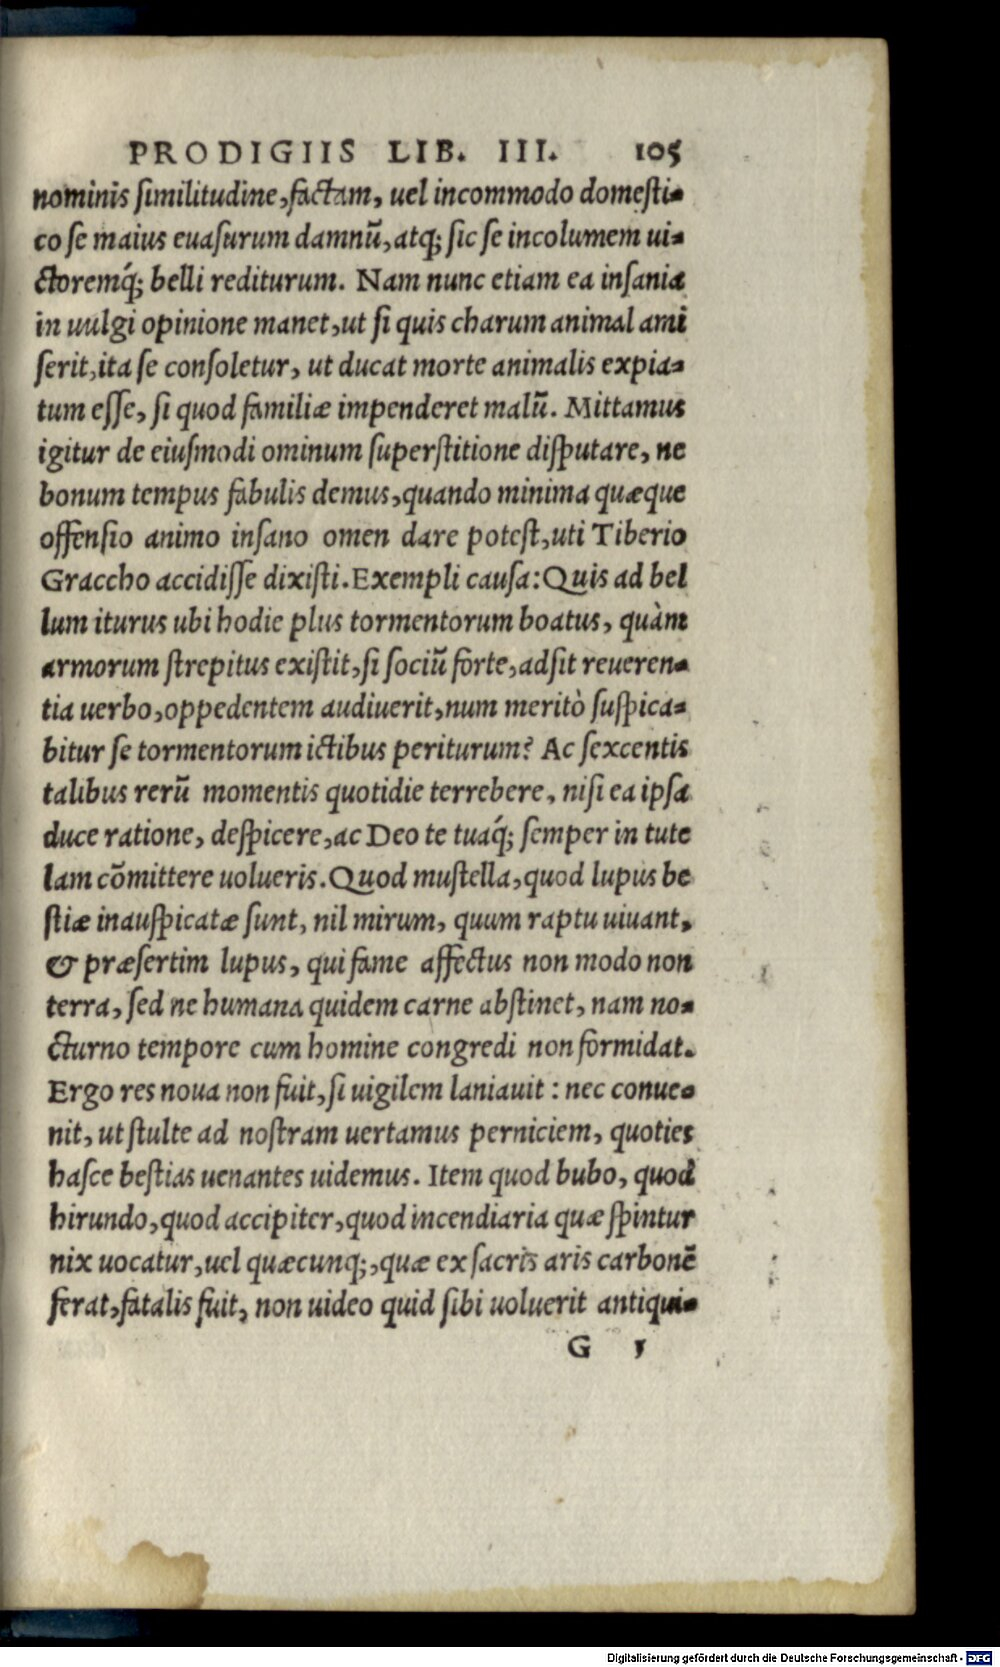 PRODIGIIS LIB. III. 105
nominis ſimilitudine, factam, uel incommodo domeſti-
co ſe maius euaſurum damnū, atq; ſic ſe incolumem ui-
ctoremq́; belli rediturum. Nam nunc etiam ea inſania
in uulgi opinione manet, ut ſi quis charum animal ami
ſerit, ita ſe conſoletur, ut ducat morte animalis expia-
tum eſſe, ſi quod familiæ impenderet malū. Mittamus
igitur de eiuſmodi ominum ſuperſtitione diſputare, ne
bonum tempus fabulis demus, quando minima quæque
offenſio animo inſano omen dare poteſt, uti Tiberio
Graccho accidiſſe dixiſti. Exempli cauſa: Quis ad bel
lum iturus ubi hodie plus tormentorum boatus, quàm
armorum ſtrepitus exiſtit, ſi ſociū forte, adſit reueren-
tia uerbo, oppedentem audiuerit, num meritò ſuſpica-
bitur ſe tormentorum ictibus periturum? Ac ſexcentis
talibus rerū momentis quotidie terrebere, niſi ea ipſa
duce ratione, deſpicere, ac Deo te tuaq́; ſemper in tute
lam cōmittere uolueris. Quod muſtella, quod lupus be
ſtiæ inauſpicatæ ſunt, nil mirum, quum raptu uiuant,
& præſertim lupus, qui fame affectus non modo non
terra, ſed ne humana quidem carne abſtinet, nam no-
cturno tempore cum homine congredi non formidat.
Ergo res noua non fuit, ſi uigilem laniauit: nec conue-
nit, ut ſtulte ad noſtram uertamus perniciem, quoties
haſce beſtias uenantes uidemus. Item quod bubo, quod
hirundo, quod accipiter, quod incendiaria quæ ſpintur
nix uocatur, uel quæcunq;, quæ ex ſacris aris carbonē
ferat, fatalis fuit, non uideo quid ſibi uoluerit antiqui-
G 5
Digitalisierung gefördert durch die Deutsche Forschungsgemeinschaft - DFG